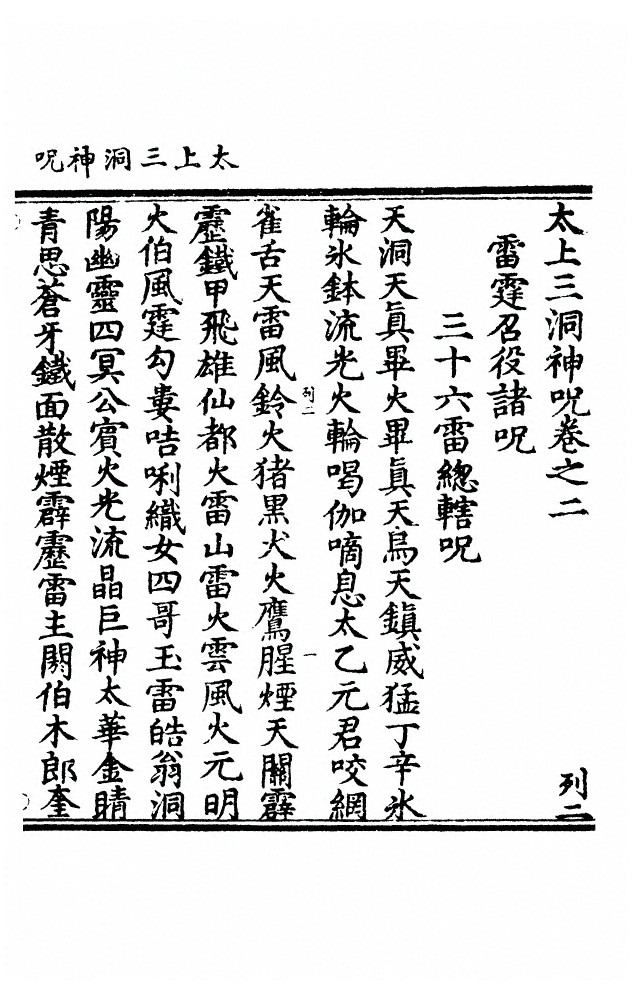 太上三洞神呪
太上三洞神呪卷之二
列二
雷霆召役諸呪
三十六雷總轄呪
天洞天眞畢火畢眞天烏天鎮威猛丁辛氷
輪氷鉢流光火輪喝伽嘀息太乙元君咬網
列二
一
雀舌天雷風鈴火猪黑犬火鷹腥煙天關霹
靂鐵甲飛雄仙都火雷山雷火雲風火元明
火伯風霆勾婁咭唎織女四哥玉雷皓翁洞
陽幽靈四冥公賓火光流晶巨神太華金睛
青思蒼牙鐵面散煙霹靂雷主閼伯木郎奎